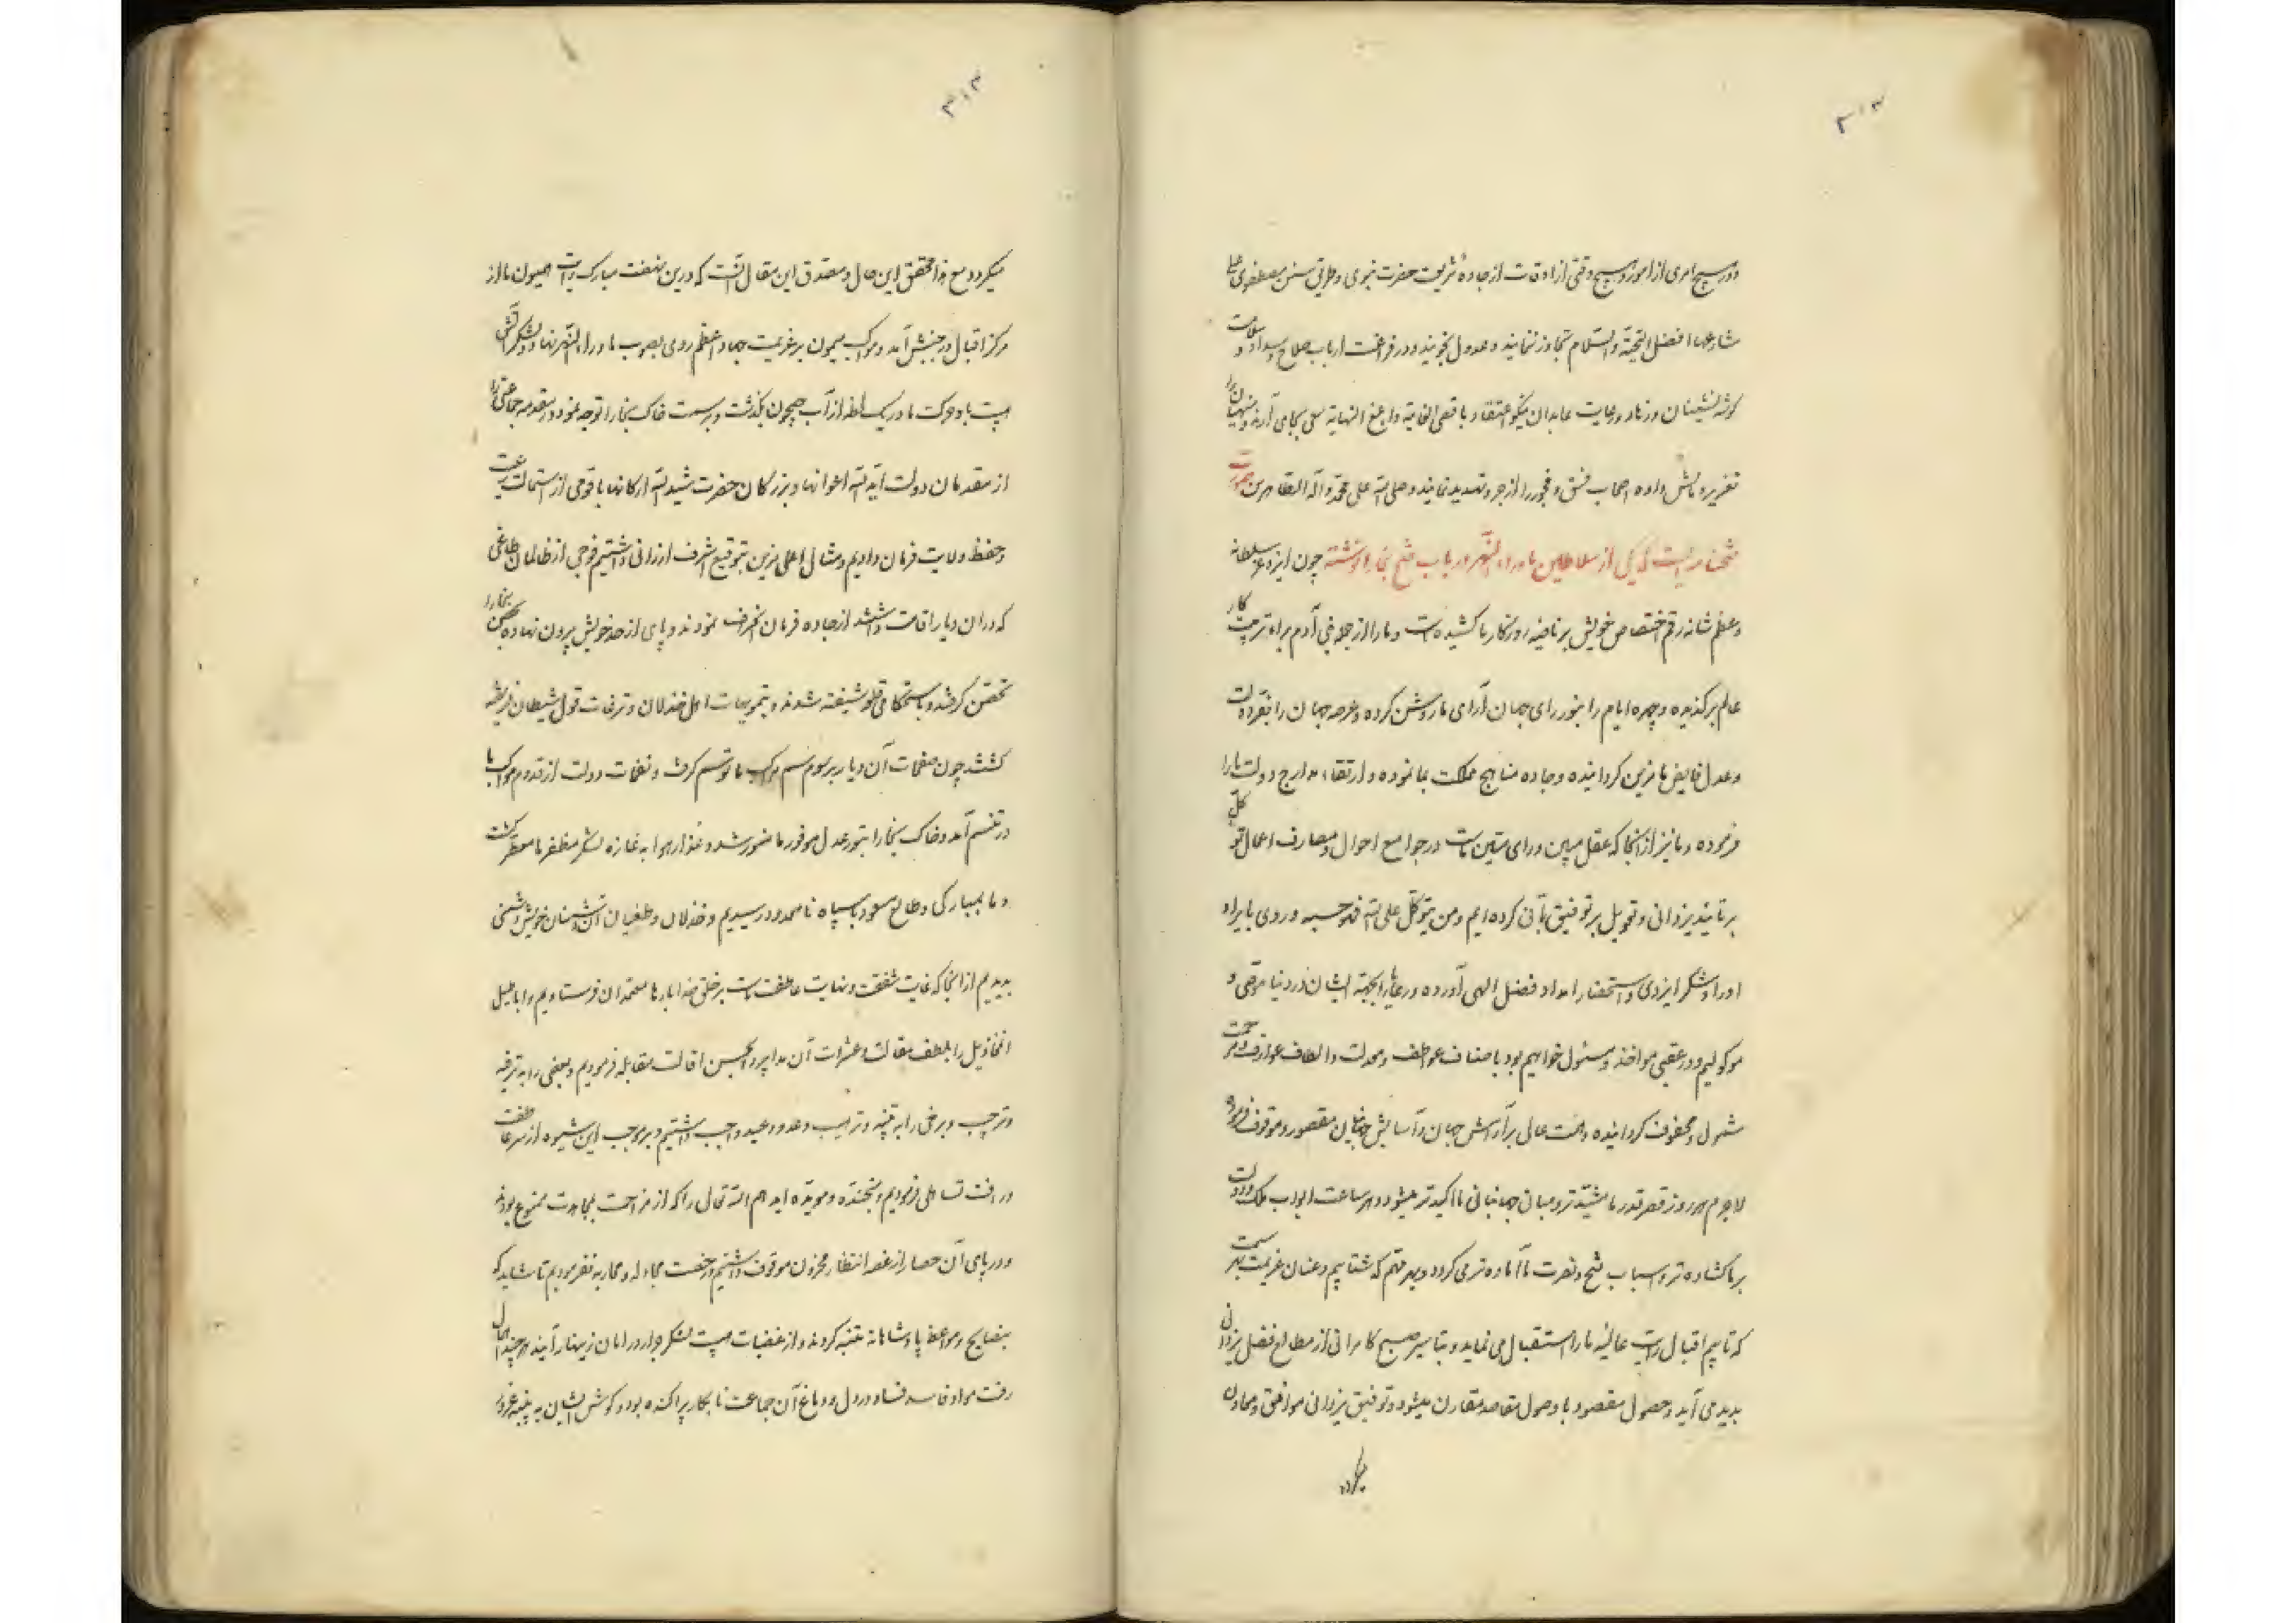 ۳۱۳
و در هیچ امری از امور و هیچ وقتی از اوقات از جاده شریعت حضرت نبوی و طریق سنن مصطفوی علی
شارعها افضل التحیة والسلام تجاوز ننمایند و عدول نجویند و در فراغت ارباب صلاح و سداد و سلامت
گوشه نشینان و زهاد و رعایت عابدان نیکو اعتقاد باقصی الغایة و ابلغ النهایة سعی بجای آرند
تعزیر و مالش داده اصحاب فسق و فجور را زجر و تهدید نمایند و صلی الله علی محمد و آله الطاهرین
فتحنامه ایست که یکی از سلاطین ماوراء النهر در باب فتح بخارا نوشته چون ایزد عز سلطانه
و عظم شانه رقم اختصاص خویش بر ناصیه روزگار ما کشیده است و ما را از جمله بنی آدم برای ترتیب کار
عالم برگزیده و چهره ایام را بنور رای جهان آرای ما روشن کرده و عرصه جهان را بفر دولت
و عدل فایض ما مزین گردانیده و جاده مناهج مملکت بما نموده و ارتقاء مدارج دولت ما را
فرموده و ما نیز از آنجا که عقل مبین و رای متین ماست در جوامع احوال و مصارف اعمال توکل
بر تایید یزدانی و تعویل بر توفیق ربانی کرده ایم و من یتوکل علی الله فهو حسبه و روی بایراد
اوراد شکر ایزدی و استحضار امداد فضل الهی آورده و رعایا را بجهة ایشان در دنیا موصی و
موکولیم و در عقبی مواخذ و مسئول خواهیم بود باصناف عواطف و معدلت و الطاف عوارف و مرحمت
مشمول و محفوف گردانیده و همت عالی بر آرامش جهان و آسایش جهانیان مقصور و موقوف فرموده
لاجرم هر روز قصر قدر ما مشید تر و مبانی جهانبانی ما اکید تر میشود و هر ساعت ابواب ملک و دولت
بر ما گشاده تر و اسباب فتح و نصرت ما آماده تر می گردد و بهر مهم که شتابیم و عنان عزیمت بهر سمت
که تابیم اقبال رایت عالیه ما را استقبال می نماید و تباشیر صبح کامرانی از مطالع فضل یزدانی
پدید می آید و حصول مقصود با وصول مقاصد مقارن میشود و توفیق یزدانی موافق و معاون
میگردد
۳۱۴
میگردد مع هذا محقق این حال و مصدق این مقال آنست که درین نهضت مبارک رایات همیون ما از
مرکز اقبال در جنبش آمد و مواکب میمون بر عزیمت جهاد اعظم روی بصوب ماوراء النهر نهاد و لشکر آتش
هیبت باد حرکت ما در یک لحظه از آب جیحون بگذشت و بر سمت خاک بخارا توجه نمود و در مقدمه جماعتی را
از مقدمان دولت اید الله اعوانها و بزرگان حضرت شید الله ارکانها با فوجی از استمالت رعیت
و حفظ ولایت فرمان دادیم و مثال اعلی مزین بتوقیع اشرف ارزانی داشتیم فوجی از ظالمان طاغی
که در آن دیار اقامت داشتند از جاده فرمان انحراف نمودند و پای از حد خویش بیرون نهاده بحصن بخارا
تحصن گرفتند و باستحکام قلعه شیفته شدند و بتمویهات اهل خذلان و ترهات قول شیطان فریفته
گشتند چون صفحات آن دیار برسوم سم مراکب ما توسم گرفت و نفحات دولت از قدوم مواکب ما
در تنسم آمد و خاک بخارا بنور عدل موفور ما منور شد و عذار هوا به غازه لشکر مظفر ما معطر گشت
و ما بمبارکی و طالع مسعود با سپاه نامحدود رسیدیم و خذلان و طغیان آن دشمنان خویش
بدیدیم از آنجا که غایت شفقت و نهایت عاطفت ماست بر خلق خدا بارها معتمدان فرستادیم و اباطیل
آن مخاذیل را بلطف مقالت و عثرات آن مدابیر را بحسن اقالت مقابله فرمودیم و بعضی را به ترفیه
و ترحیب و برخی را به تنبیه و ترهیب وعد و وعید واجب داشتیم و بر موجب این شیوه از سر عاطفت
و رافت تساهلی فرمودیم و بجنده مویده ایدهم الله تعالی را که از مزاحمت مجاهدت ممنوع بودند
و در پای آن حصار از غصه انتظار محزون موقوف داشتیم و رخصت مجادله و محاربه نفرمودیم تا شاید که
بنصایح و مواعظ پادشاهانه متنبه گردند و از غضبات هیبت لشکر جرار در امان زینهار آیند هر چند امهال
رفت مواد فاسد فساد در دل و دماغ آن جماعت نابکار پراکنده بود و گوش ایشان به پنبه غرور